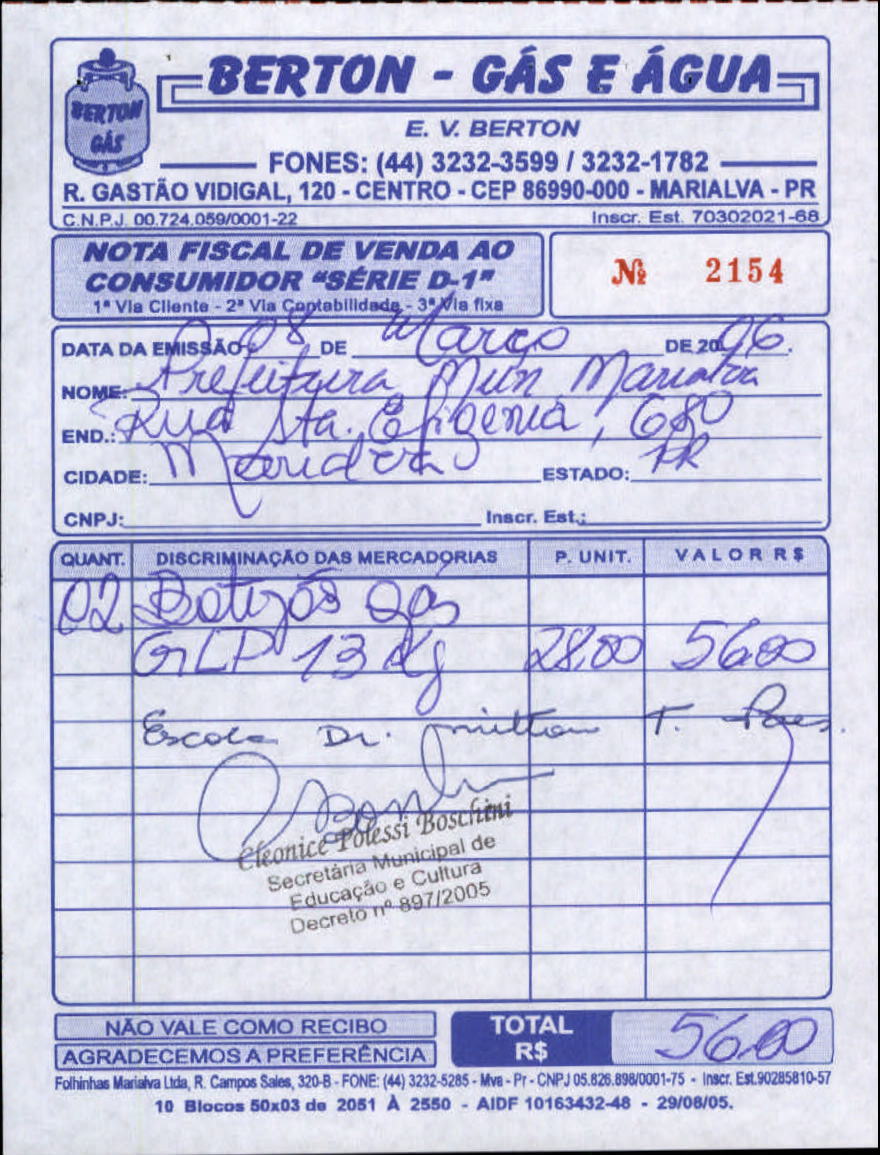 BERTON - GÁS E ÁGUA
BERTON
GÁS
E. V. BERTON
FONES: (44) 3232-3599 / 3232-1782
R. GASTÃO VIDIGAL, 120 - CENTRO - CEP 86990-000 - MARIALVA - PR
C.N.P.J. 00.724.059/0001-22 Inscr. Est. 70302021-68
NOTA FISCAL DE VENDA AO
CONSUMIDOR "SÉRIE D-1"
1ª Via Cliente - 2ª Via Contabilidade - 3ª Via fixa
Nº 2154
DATA DA EMISSÃO 08 DE Março DE 2006.
NOME: Prefeitura Mun Marialva
END.: Rua Sta. Efigenia, 680
CIDADE: Marialva ESTADO: PR
CNPJ: Inscr. Est.:
QUANT. DISCRIMINAÇÃO DAS MERCADORIAS P. UNIT. VALOR R$
02 Botijós Gás
GLP 13 Kg 28,00 56,00
Escola Dr. Milton T. Paes.
Cleonice Polessi Boschini
Secretária Municipal de
Educação e Cultura
Decreto nº 897/2005
NÃO VALE COMO RECIBO
AGRADECEMOS A PREFERÊNCIA
TOTAL
R$ 56,00
Folhinhas Marialva Ltda, R. Campos Sales, 320-B - FONE: (44) 3232-5285 - Mva - Pr - CNPJ 05.826.898/0001-75 - Inscr. Est.90285810-57
10 Blocos 50x03 de 2051 À 2550 - AIDF 10163432-48 - 29/08/05.